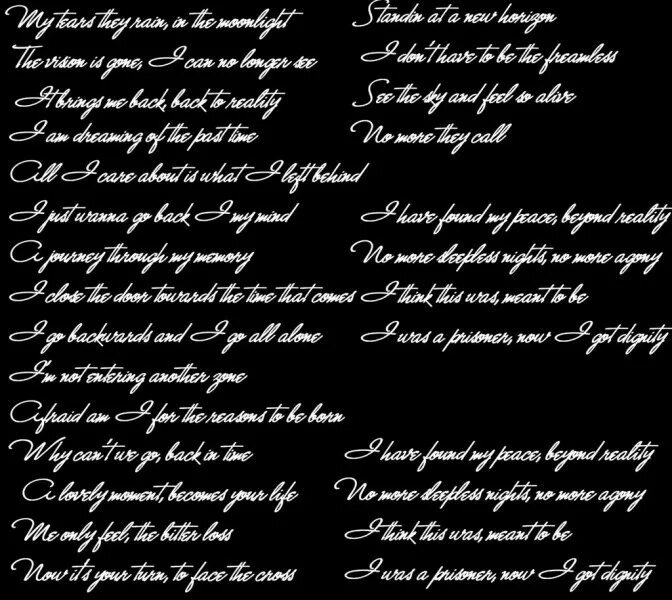 My tears they rain, in the moonlight
The vision is gone, I can no longer see
It brings me back, back to reality
I am dreaming of the past time
All I care about is what I left behind
I just wanna go back I my mind
A journey through my memory
I close the door towards the time that comes
I go backwards and I go all alone
I'm not entering another zone
Afraid am I for the reasons to be born
Why can't we go, back in time
A lovely moment, becomes your life
Me only feel, the bitter loss
Now it's your turn, to face the cross
Standin at a new horizon
I don't have to be the freamless
See the sky and feel so alive
No more they call
I have found my peace, beyond reality
No more sleepless nights, no more agony
I think this was, meant to be
I was a prisoner, now I got dignity
I have found my peace, beyond reality
No more sleepless nights, no more agony
I think this was, meant to be
I was a prisoner, now I got dignity